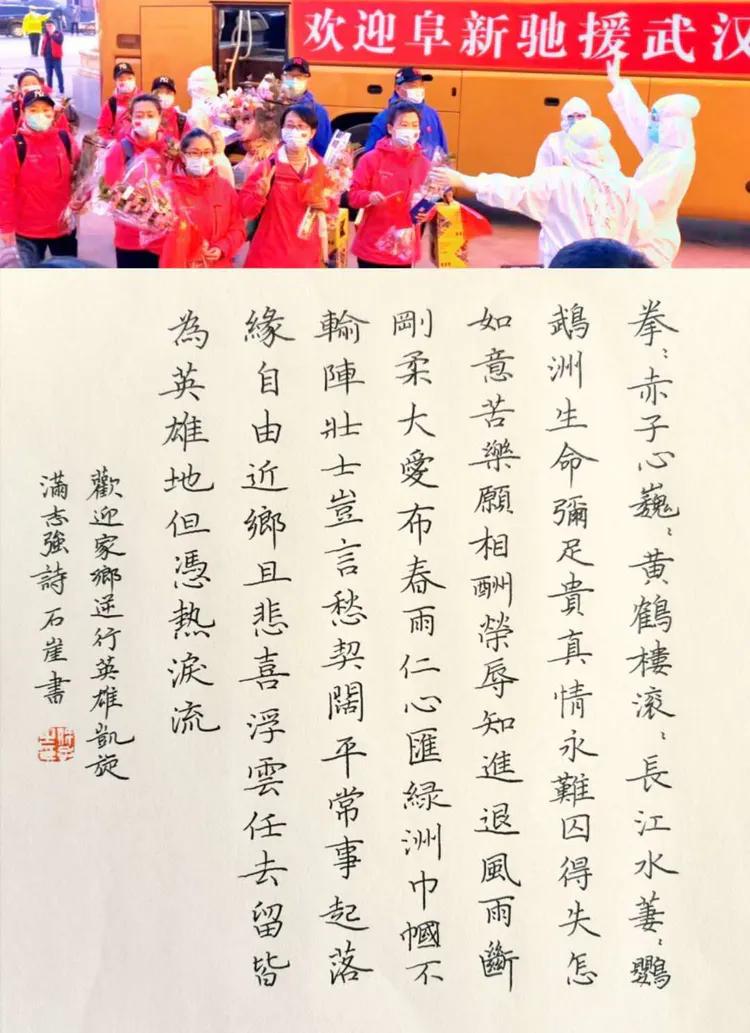 欢迎阜新驰援武汉
拳〻赤子心巍〻黄鶴樓滚〻長江水萋〻鸚
鵡洲生命彌足貴真情永難囚得失怎
如意苦樂願相酬榮辱知進退風雨斷
剛柔大愛布春雨仁心匯緑洲巾幗不
輸陣壯士豈言愁契闊平常事起落
緣自由近鄉且悲喜浮雲任去留皆
為英雄地但憑熱淚流
歡迎家鄉逆行英雄凱旋
滿志強詩石崖書